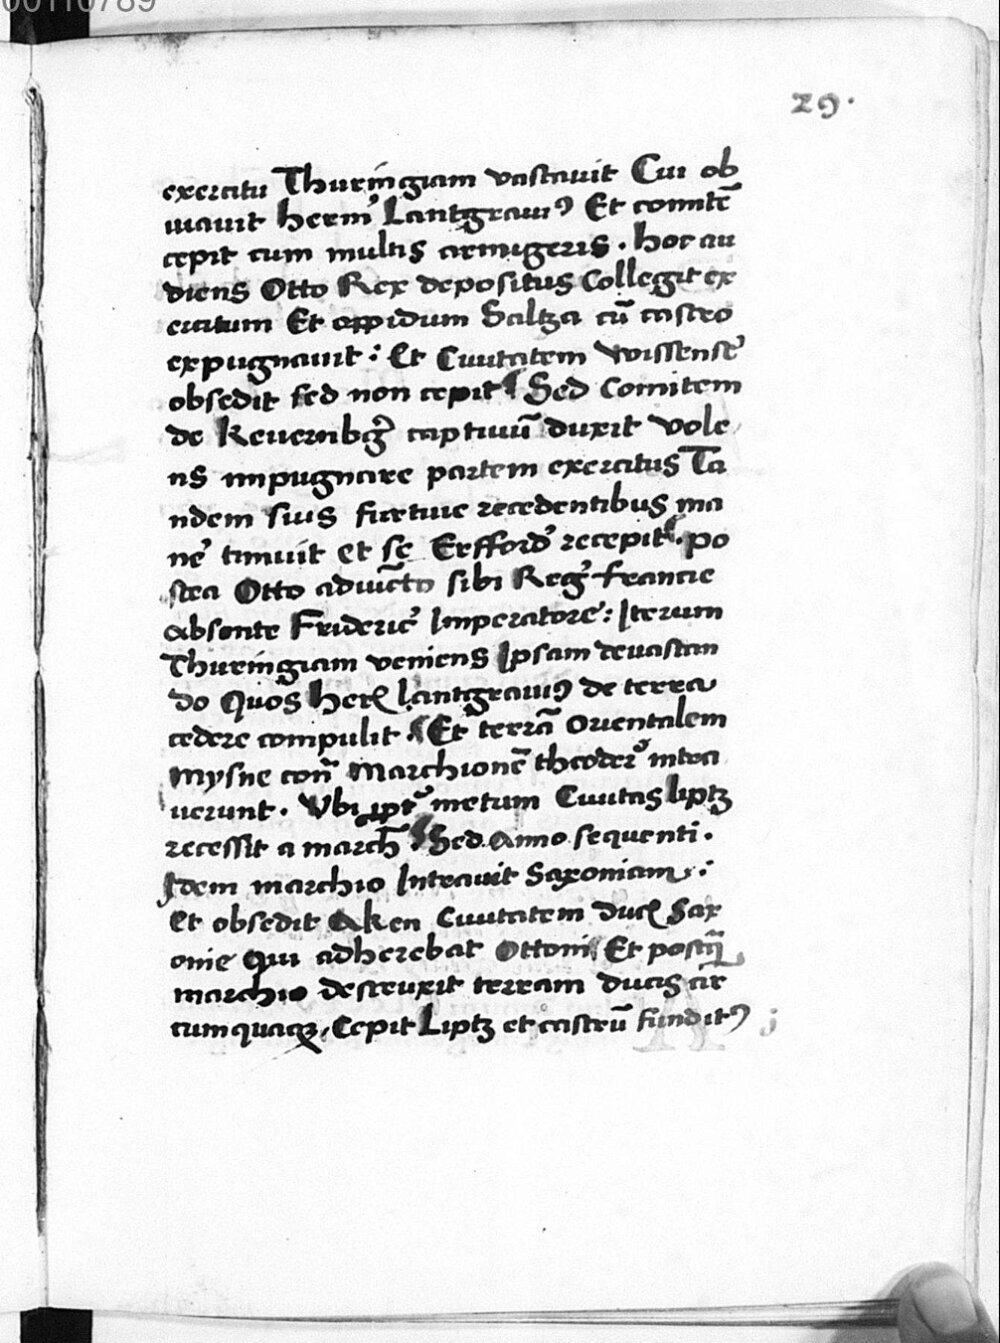 00110789
29.
exercitu Thuringiam vastauit Cui ob
uiauit herm' Lantgrauiꝰ Et comitē
cepit cum multis armigeris . hoc au
diens Otto Rex depositus Collegit ex
ercitum Et oppidum Saltza cū castro
expugnauit : Et Ciuitatem Wissense'
obsedit sed non cepit ¶ Sed Comitem
de Keuernbg' captiuū duxit vole
ns impugnare partem exercitus Ta
ndem suis furtiue recedentibus ma
ne' timuit et se Erfford' recepit ¶ . po
stea Otto adiūcto sibi Reg' francie
absente Frideric' Imperatore' : Iterum
Thuringiam veniens Ipsam deuastan
do Quos her lantgrauiꝰ de terra
cedere compulit ¶ Et terrā Orientalem
Mysne con̄ Marchionē theoder' intra
uerunt . Vbi metum Ciuitas liptz
recessit a march̄ . ¶ Sed Anno sequenti .
Idem marchio Intrauit Saxoniam . :
Et obsedit Aken Ciuitatem duc Sax
onie Qui adherebat Ottoni ¶ Et postq̄
marchio destruxit terram ducis cir
cumquaqꝫ , Cepit Liptz et castrū funditꝰ ;